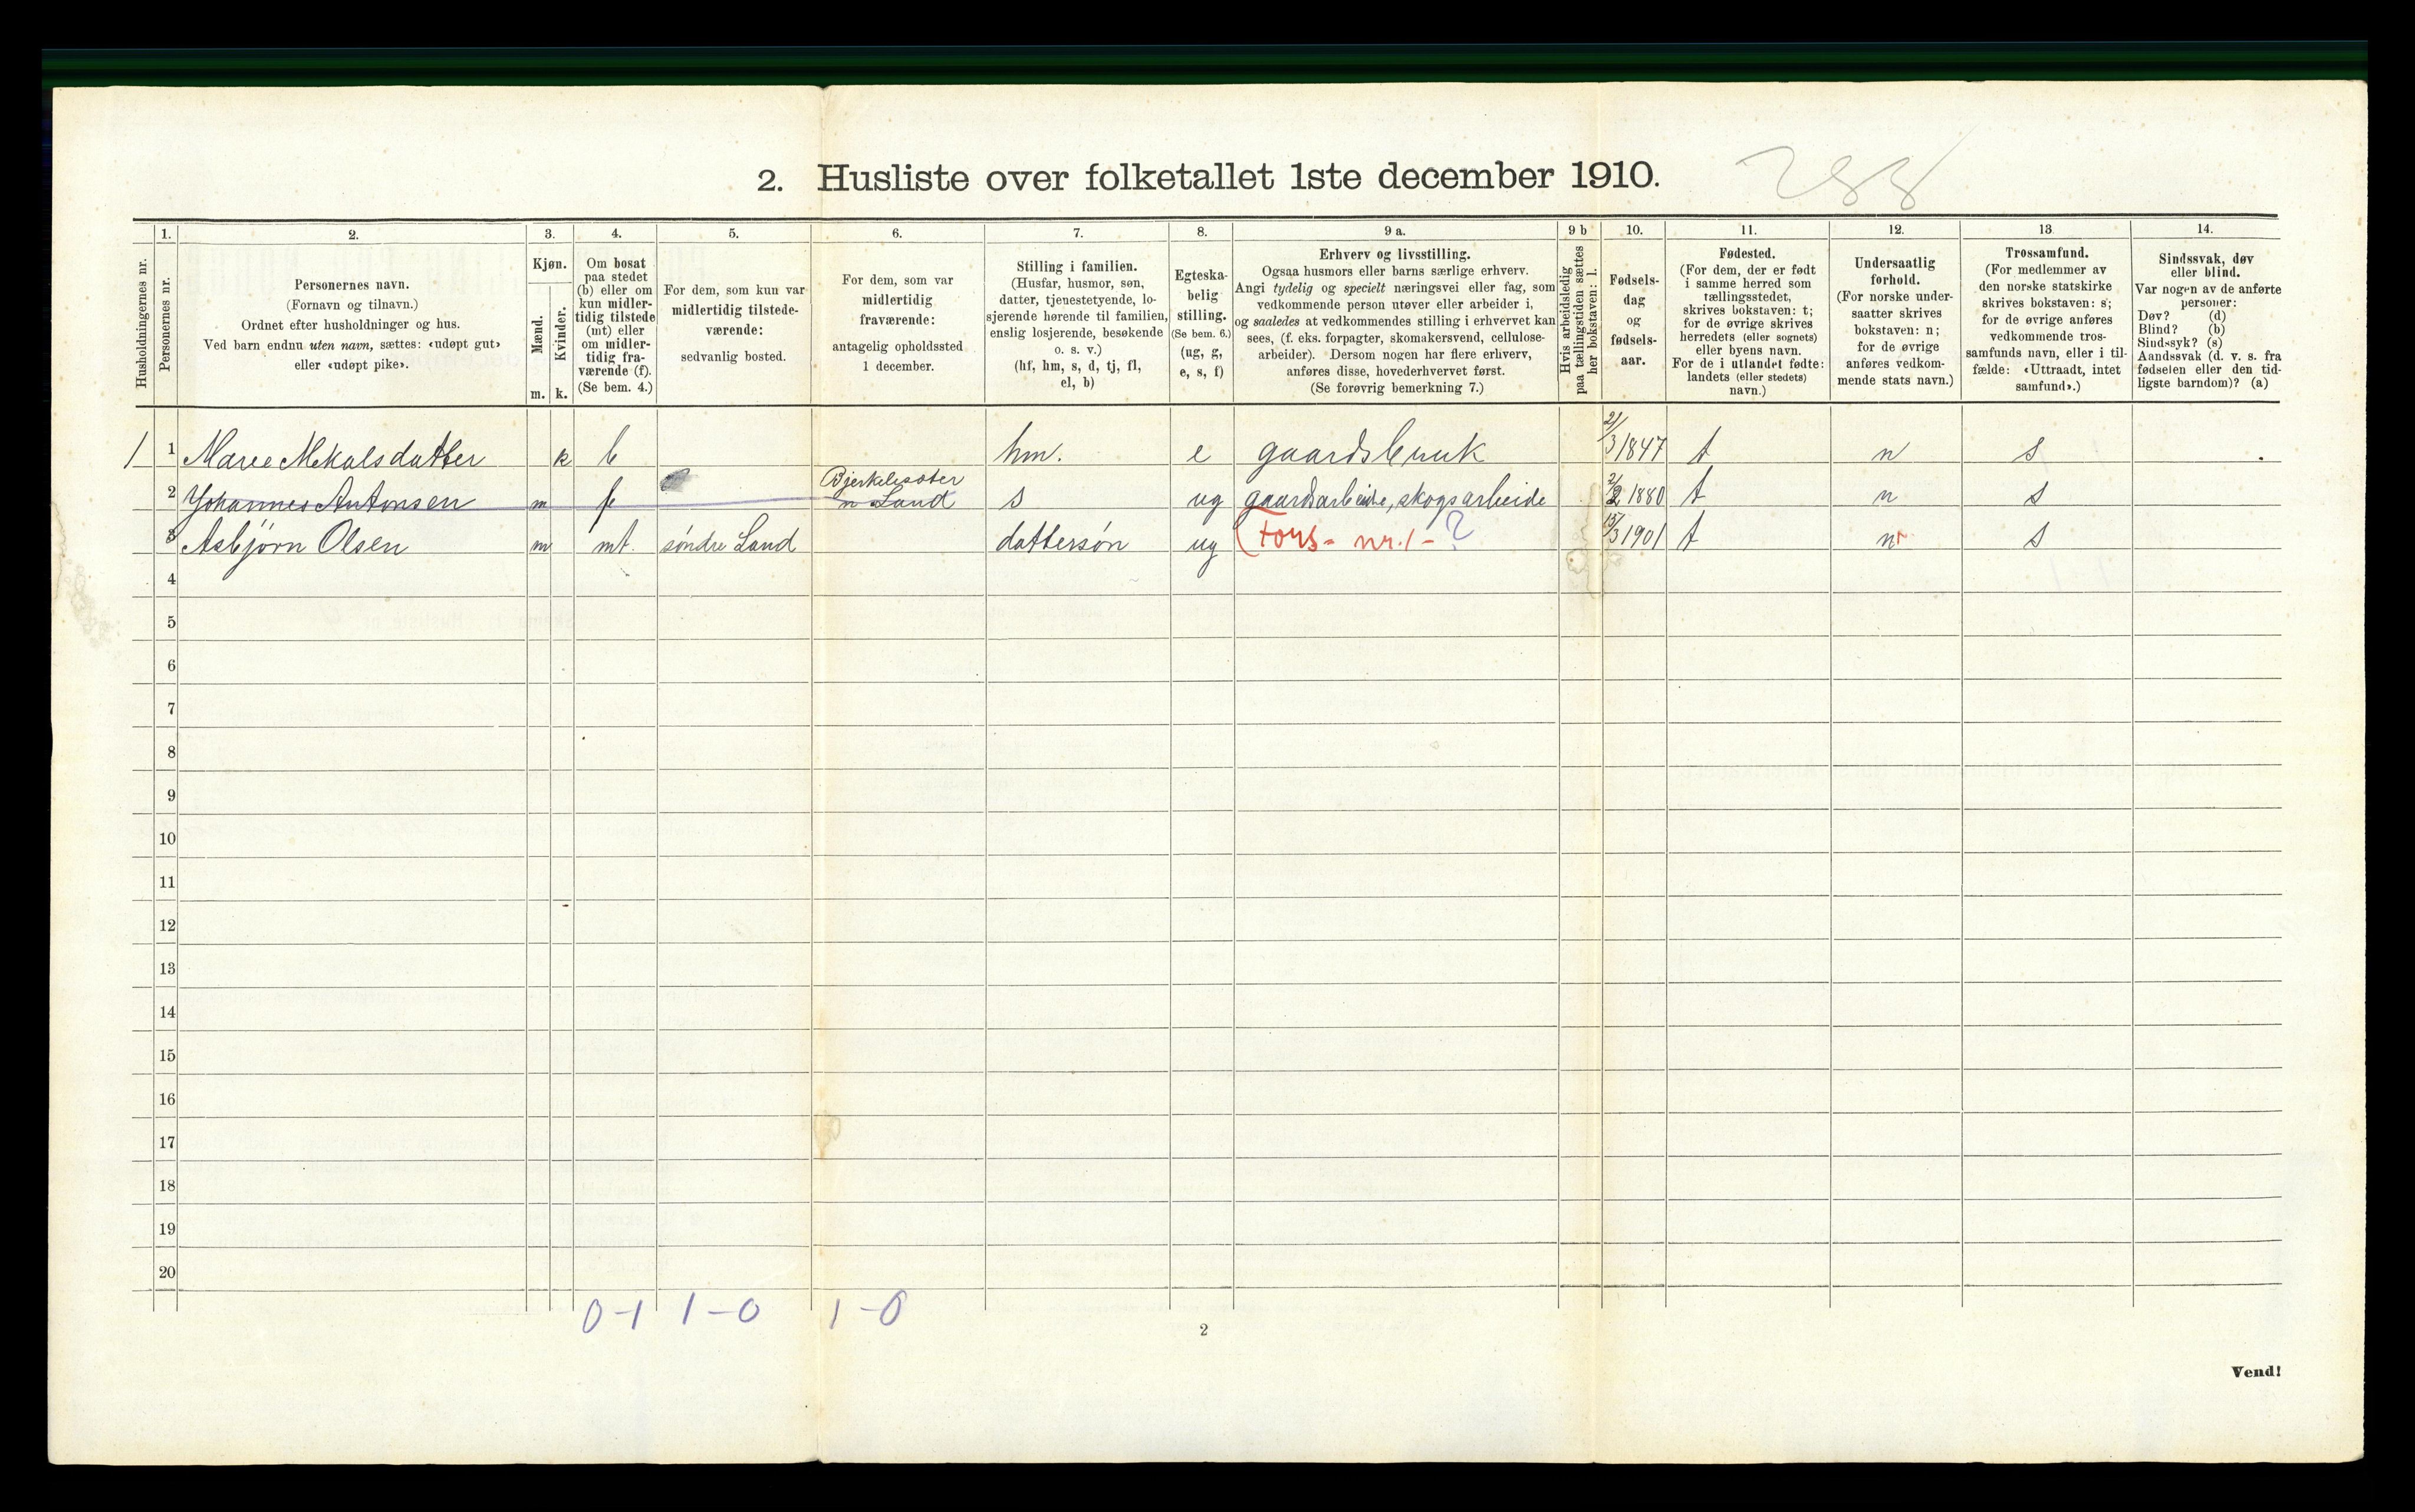 2. Husliste over folketallet 1ste december 1910. 288
Husholdningernes nr.
1.
Personernes nr.
2.
Personernes navn.
(Fornavn og tilnavn.)
Ordnet efter husholdninger og hus.
Ved barn endnu uten navn, sættes: «udøpt gut»
eller «udøpt pike».
3.
Kjøn.
Mænd.
Kvinder.
m. k.
4.
Om bosat
paa stedet
(b) eller om
kun midler-
tidig tilstede
(mt) eller
om midler-
tidig fra-
værende (f).
(Se bem. 4.)
5.
For dem, som kun var
midlertidig tilstede-
værende:
sedvanlig bosted.
6.
For dem, som var
midlertidig
fraværende:
antagelig opholdssted
1 december.
7.
Stilling i familien.
(Husfar, husmor, søn,
datter, tjenestetyende, lo-
sjerende hørende til familien,
enslig losjerende, besøkende
o. s. v.)
(hf, hm, s, d, tj, fl,
el, b)
8.
Egteska-
belig
stilling.
(Se bem. 6.)
(ug, g,
e, s, f)
9 a.
Erhverv og livsstilling.
Ogsaa husmors eller barns særlige erhverv.
Angi tydelig og specielt næringsvei eller fag, som
vedkommende person utøver eller arbeider i,
og saaledes at vedkommendes stilling i erhvervet kan
sees, (f. eks. forpagter, skomakersvend, cellulose-
arbeider). Dersom nogen har flere erhverv,
anføres disse, hovederhvervet først.
(Se forøvrig bemerkning 7.)
9 b
Hvis arbeidsledig
paa tællingstiden sættes
her bokstaven: l.
10.
Fødsels-
dag
og
fødsels-
aar.
11.
Fødested.
(For dem, der er født
i samme herred som
tællingsstedet,
skrives bokstaven: t;
for de øvrige skrives
herredets (eller sognets)
eller byens navn.
For de i utlandet fødte:
landets (eller stedets)
navn.)
12.
Undersaatlig
forhold.
(For norske under-
saatter skrives
bokstaven: n;
for de øvrige
anføres vedkom-
mende stats navn.)
13
Trossamfund.
(For medlemmer av
den norske statskirke
skrives bokstaven: s;
for de øvrige anføres
vedkommende tros-
samfunds navn, eller i til-
fælde: «Uttraadt, intet
samfund».)
14.
Sindssvak, døv
eller blind.
Var nogen av de anførte
personer:
Døv? (d)
Blind? (b)
Sindssyk? (s)
Aandssvak (d. v. s. fra
fødselen eller den tid-
ligste barndom)? (a)
1 1 Maree Mekalsdatter k b hm. e gaardsbruuk 21/3 1847 t n s
2 Yohannes Antonsen m f Bjerkelisæter n Land s ug gaardsarbeide, skogsarbeide 2/2 1880 t n s
3 Asbjørn Olsen m mt. søndre Land dattersøn ug (Fors= nr. 1 - ? 15/3 1901 t n s
4
5
6
7
8
9
10
11
12
13
14
15
16
17
18
19
20
0-1 1-0 1-0
2
Vend!